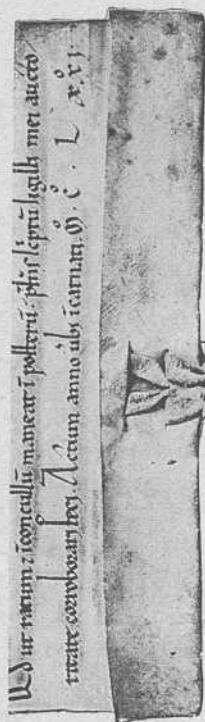 Qd ut ratum ⁊ īconcussū maneat ī posterū. p̄sens sc̄ptū sigilli mei aucto
ritate corroborari feci. Actum anno ūbi īcarnati. M̊. C̊. L x̊xj